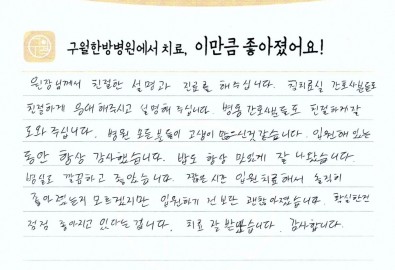 구월한방병원에서 치료, 이만큼 좋아졌어요!
원장님께서 친절한 설명과 진료를 해주십니다. 치료실 간호사분들도
친절하게 응대해주시고 설명해 주십니다. 병동 간호사분들도 친절하게 잘
도와 주십니다. 병원 모든분들이 고생이 많으신것 같습니다. 입원해 있는
동안 항상 감사했습니다. 밥도 항상 맛있게 잘 나왔습니다.
병실도 깔끔하고 좋았습니다. 짧은 시간 입원치료해서 확실히
좋아졌는지 모르겠지만 입원하기 전보단 괜찮아졌습니다. 확실한건
점점 좋아지고 있다는 겁니다. 치료 잘 받았습니다. 감사합니다.